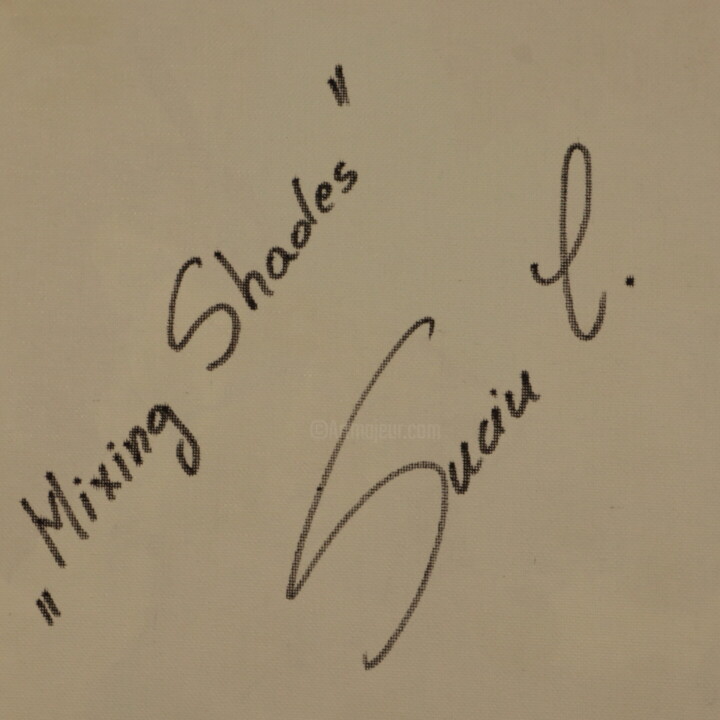 „Mixing Shades"
Suciu C.
©Artmajeur.com